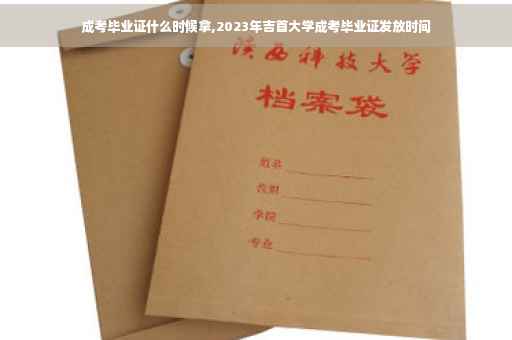 成考毕业证什么时候拿,2023年吉首大学成考毕业证发放时间
陕西科技大学
档案袋
姓名
学院
专业